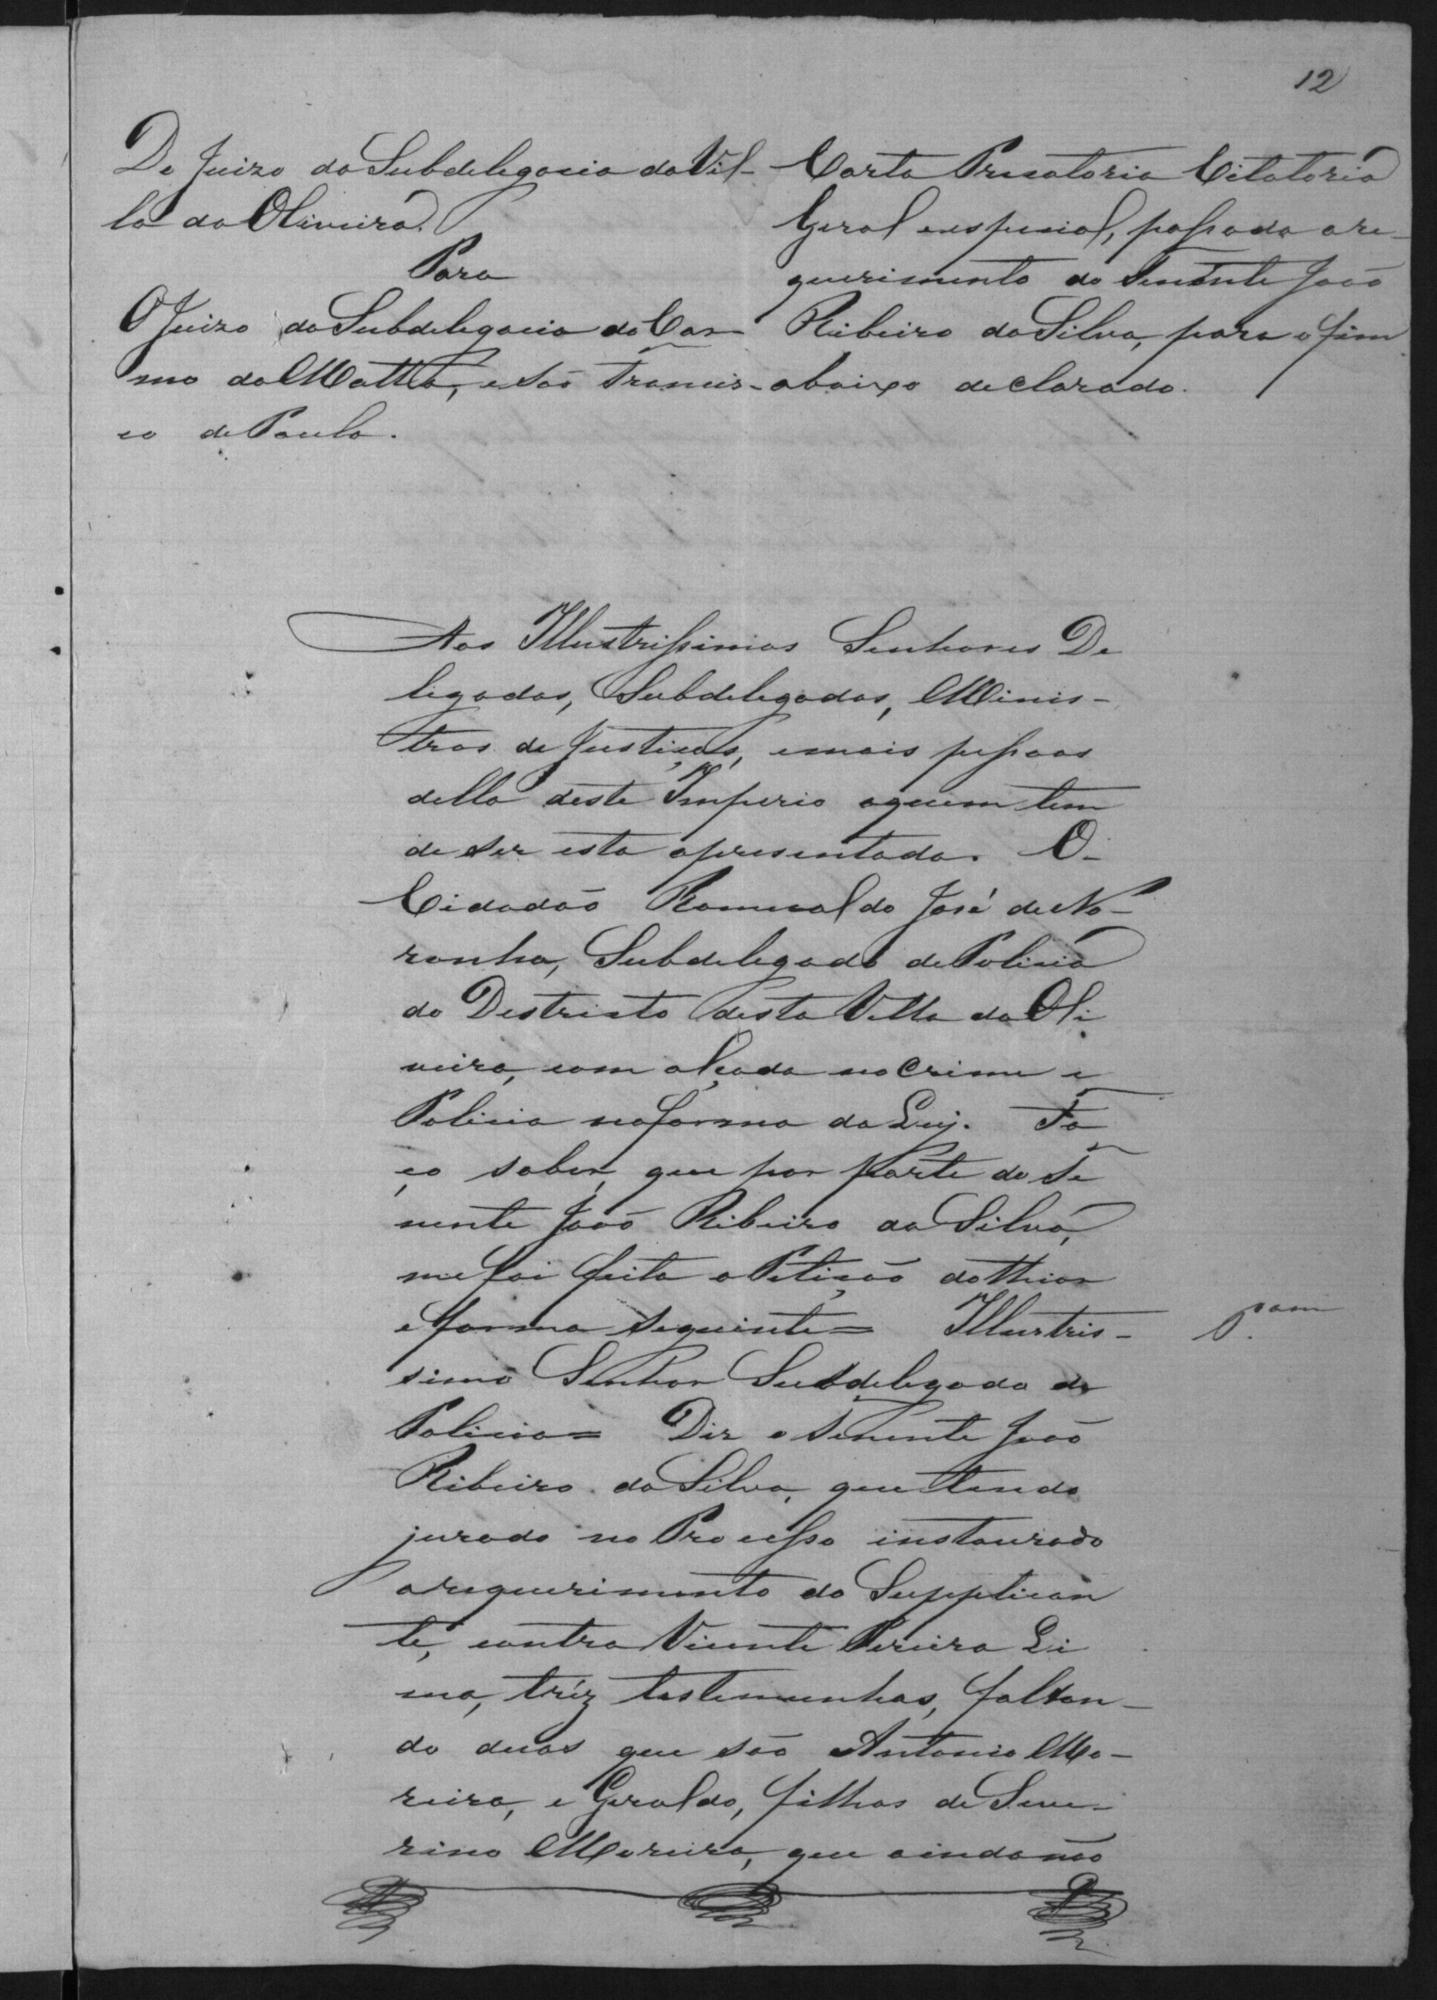 12
Do Juizo da Subdelegacia da Vil-
la da Oliveira.
Para
O Juizo da Subdelegacia do Car-
mo da Matta, e São Francis-
co de Paula.
Carta Precatoria Citatoria
Geral e especial, passada a re-
querimento do Tenente João
Ribeiro da Silva, para o fim
abaixo declarado.
Aos Illustrissimos Senhores De
legados, Subdelegados, Minis-
tros de Justiças, e mais pessoas
della deste Imperio aquem tem
de ser esta apresentada. O-
Cidadão Romualdo José de No-
ronha, Subdelegado de Policia
do Destricto desta Villa da Oli
veira, com alçada no Crime e
Policia na forma da Ley. Fa
ço saber, que por parte do Te
nente João Ribeiro da Silva,
me foi feita a Petição do theor
e forma seguinte = Illustris-
simo Senhor Subdelegado de
Policia = Diz o Tenente João
Ribeiro da Silva, que tendo
jurado no Processo instaurado
a requerimento do Supplican
te, contra Vicente Pereira Li
ma, tréz testemunhas, faltan-
do duas que são Antonio Mo-
reira, e Geraldo, filhos de Seve-
rino Moreira, que ainda não